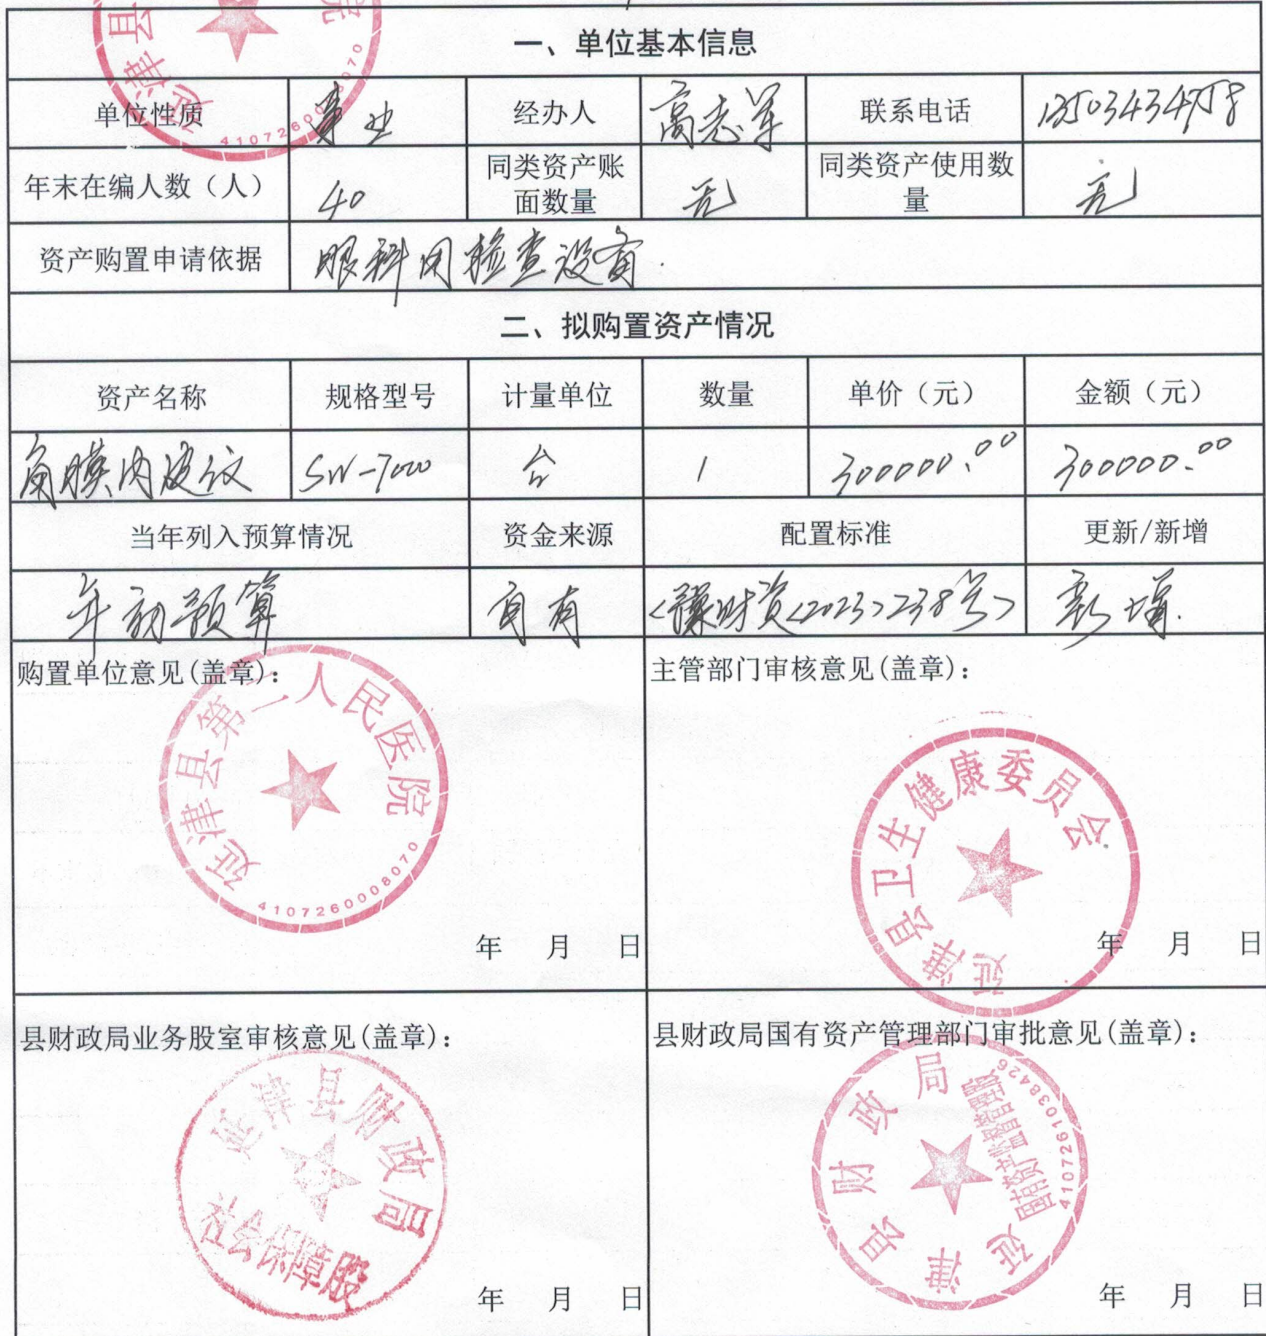 一、单位基本信息
单位性质 事业 经办人 高志军 联系电话
年末在编人数（人） 40 同类资产账面数量 无 同类资产使用数量 无
资产购置申请依据 眼科用检查设备.
二、拟购置资产情况
资产名称 规格型号 计量单位 数量 单价（元） 金额（元）
角膜内皮仪 SW-7000 台 1 300000.00 300000.00
当年列入预算情况 资金来源 配置标准 更新/新增
年初预算 自有 <豫财资<2023>238号> 新增.
购置单位意见(盖章):
延津县第二人民医院
4107260008070
年 月 日
主管部门审核意见(盖章):
延津县卫生健康委员会
年 月 日
县财政局业务股室审核意见(盖章):
延津县财政局
社会保障股
年 月 日
县财政局国有资产管理部门审批意见(盖章):
延津县财政局
4107261038426
年 月 日